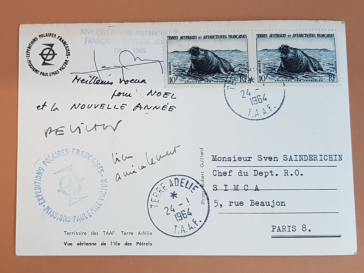 EXPEDITIONS POLAIRES FRANÇAISES
MISSIONS PAUL EMILE VICTOR
TERRES AUSTRALES ET ANTARCTIQUES FRANÇAISES
TERRES AUSTRALES ET ANTARCTIQUES FRANÇAISES
24 -1
1964
T.A.A.F.
Meilleurs voeux
pour NOEL
et la NOUVELLE ANNÉE
bien
amicalement
EXPEDITIONS POLAIRES FRANÇAISES
MISSIONS PAUL EMILE VICTOR
TERRE ADELIE
24 -1
1964
T.A.A.F.
Monsieur Sven SAINDERICHIN
Chef du Dept. R.O.
S I M C A
5, rue Beaujon
PARIS 8.
Territoire des TAAF. Terre Adélie
Vue aérienne de l'Ile des Pétrels